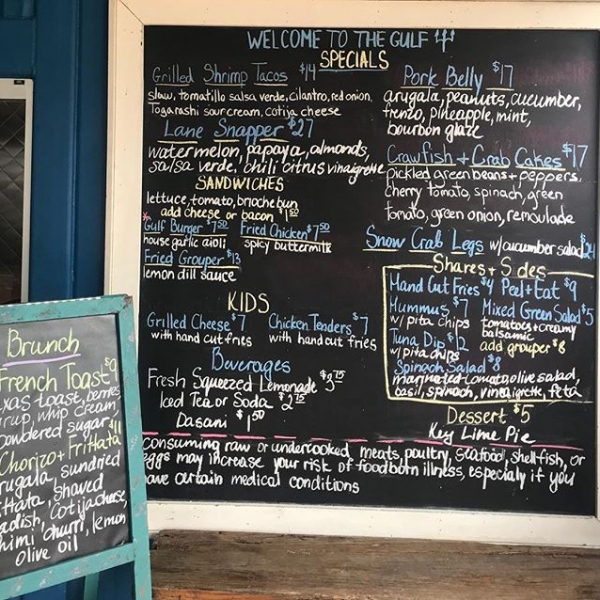 WELCOME TO THE GULF
SPECIALS
Grilled Shrimp Tacos $14
slaw, tomatillo salsa verde, cilantro, red onion,
Togarashi sour cream, cotija cheese
Lane Snapper $27
watermelon, papaya, almonds,
salsa verde, chili citrus vinaigrette
SANDWICHES
lettuce, tomato, brioche bun
add cheese or bacon $1.50
Gulf Burger $7.50
house garlic aioli
Fried Chicken $7.50
spicy buttermilk
Fried Grouper $13
lemon dill sauce
KIDS
Grilled Cheese $7
with hand cut fries
Chicken Tenders $7
with hand cut fries
Beverages
Fresh Squeezed Lemonade $3.75
Iced Tea or Soda $2.75
Dasani $1.50
Pork Belly $17
arugala, peanuts, cucumber,
frenzo, pineapple, mint,
bourbon glaze
Crawfish + Crab Cakes $17
pickled green beans + peppers,
cherry tomato, spinach, green
tomato, green onion, remoulade
Snow Crab Legs w/cucumber salad
Shares + Sides
Hand Cut Fries $4 Peel + Eat $9
Hummus $7
w/ pita chips
Mixed Green Salad $5
tomatoes + creamy
balsamic
Tuna Dip $12
w/ pita chips
add grouper $8
Spinach Salad $8
marinated tomato, olive salad,
basil, spinach, vinaigrette, feta
Dessert $5
Key Lime Pie
consuming raw or undercooked meats, poultry, seafood, shellfish, or
eggs may increase your risk of foodborn illness, especialy if you
have certain medical conditions
Brunch
French Toast $9
toast, berries,
whip cream
powdered sugar
Chorizo + Frittata $11
sundried
shaved
cotija cheese,
lemon
olive oil